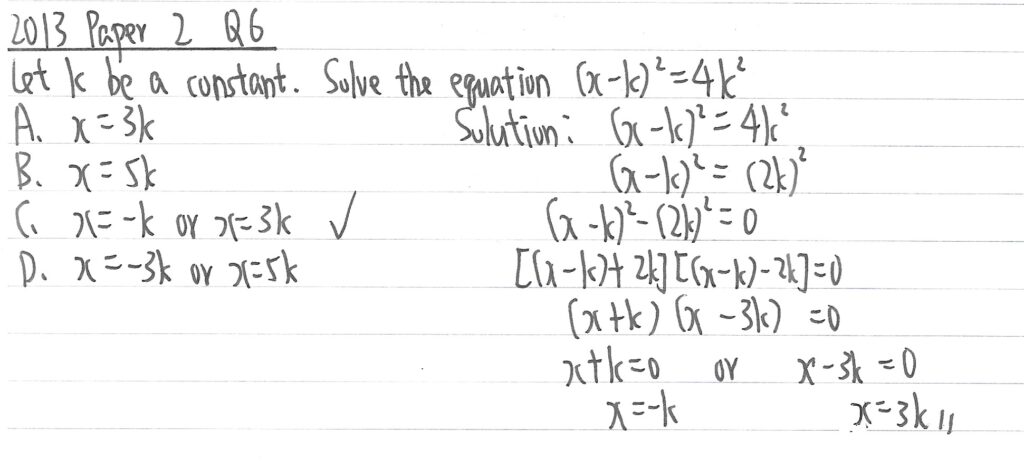 2013 Paper 2 Q6
Let k be a constant. Solve the equation (x-k)²=4k²
A. x=3k
B. x=5k
C. x=-k or x=3k ✓
D. x=-3k or x=5k
Solution: (x-k)²=4k²
(x-k)²=(2k)²
(x-k)²-(2k)²=0
[(x-k)+2k][(x-k)-2k]=0
(x+k)(x-3k)=0
x+k=0 or x-3k=0
x=-k x=3k//